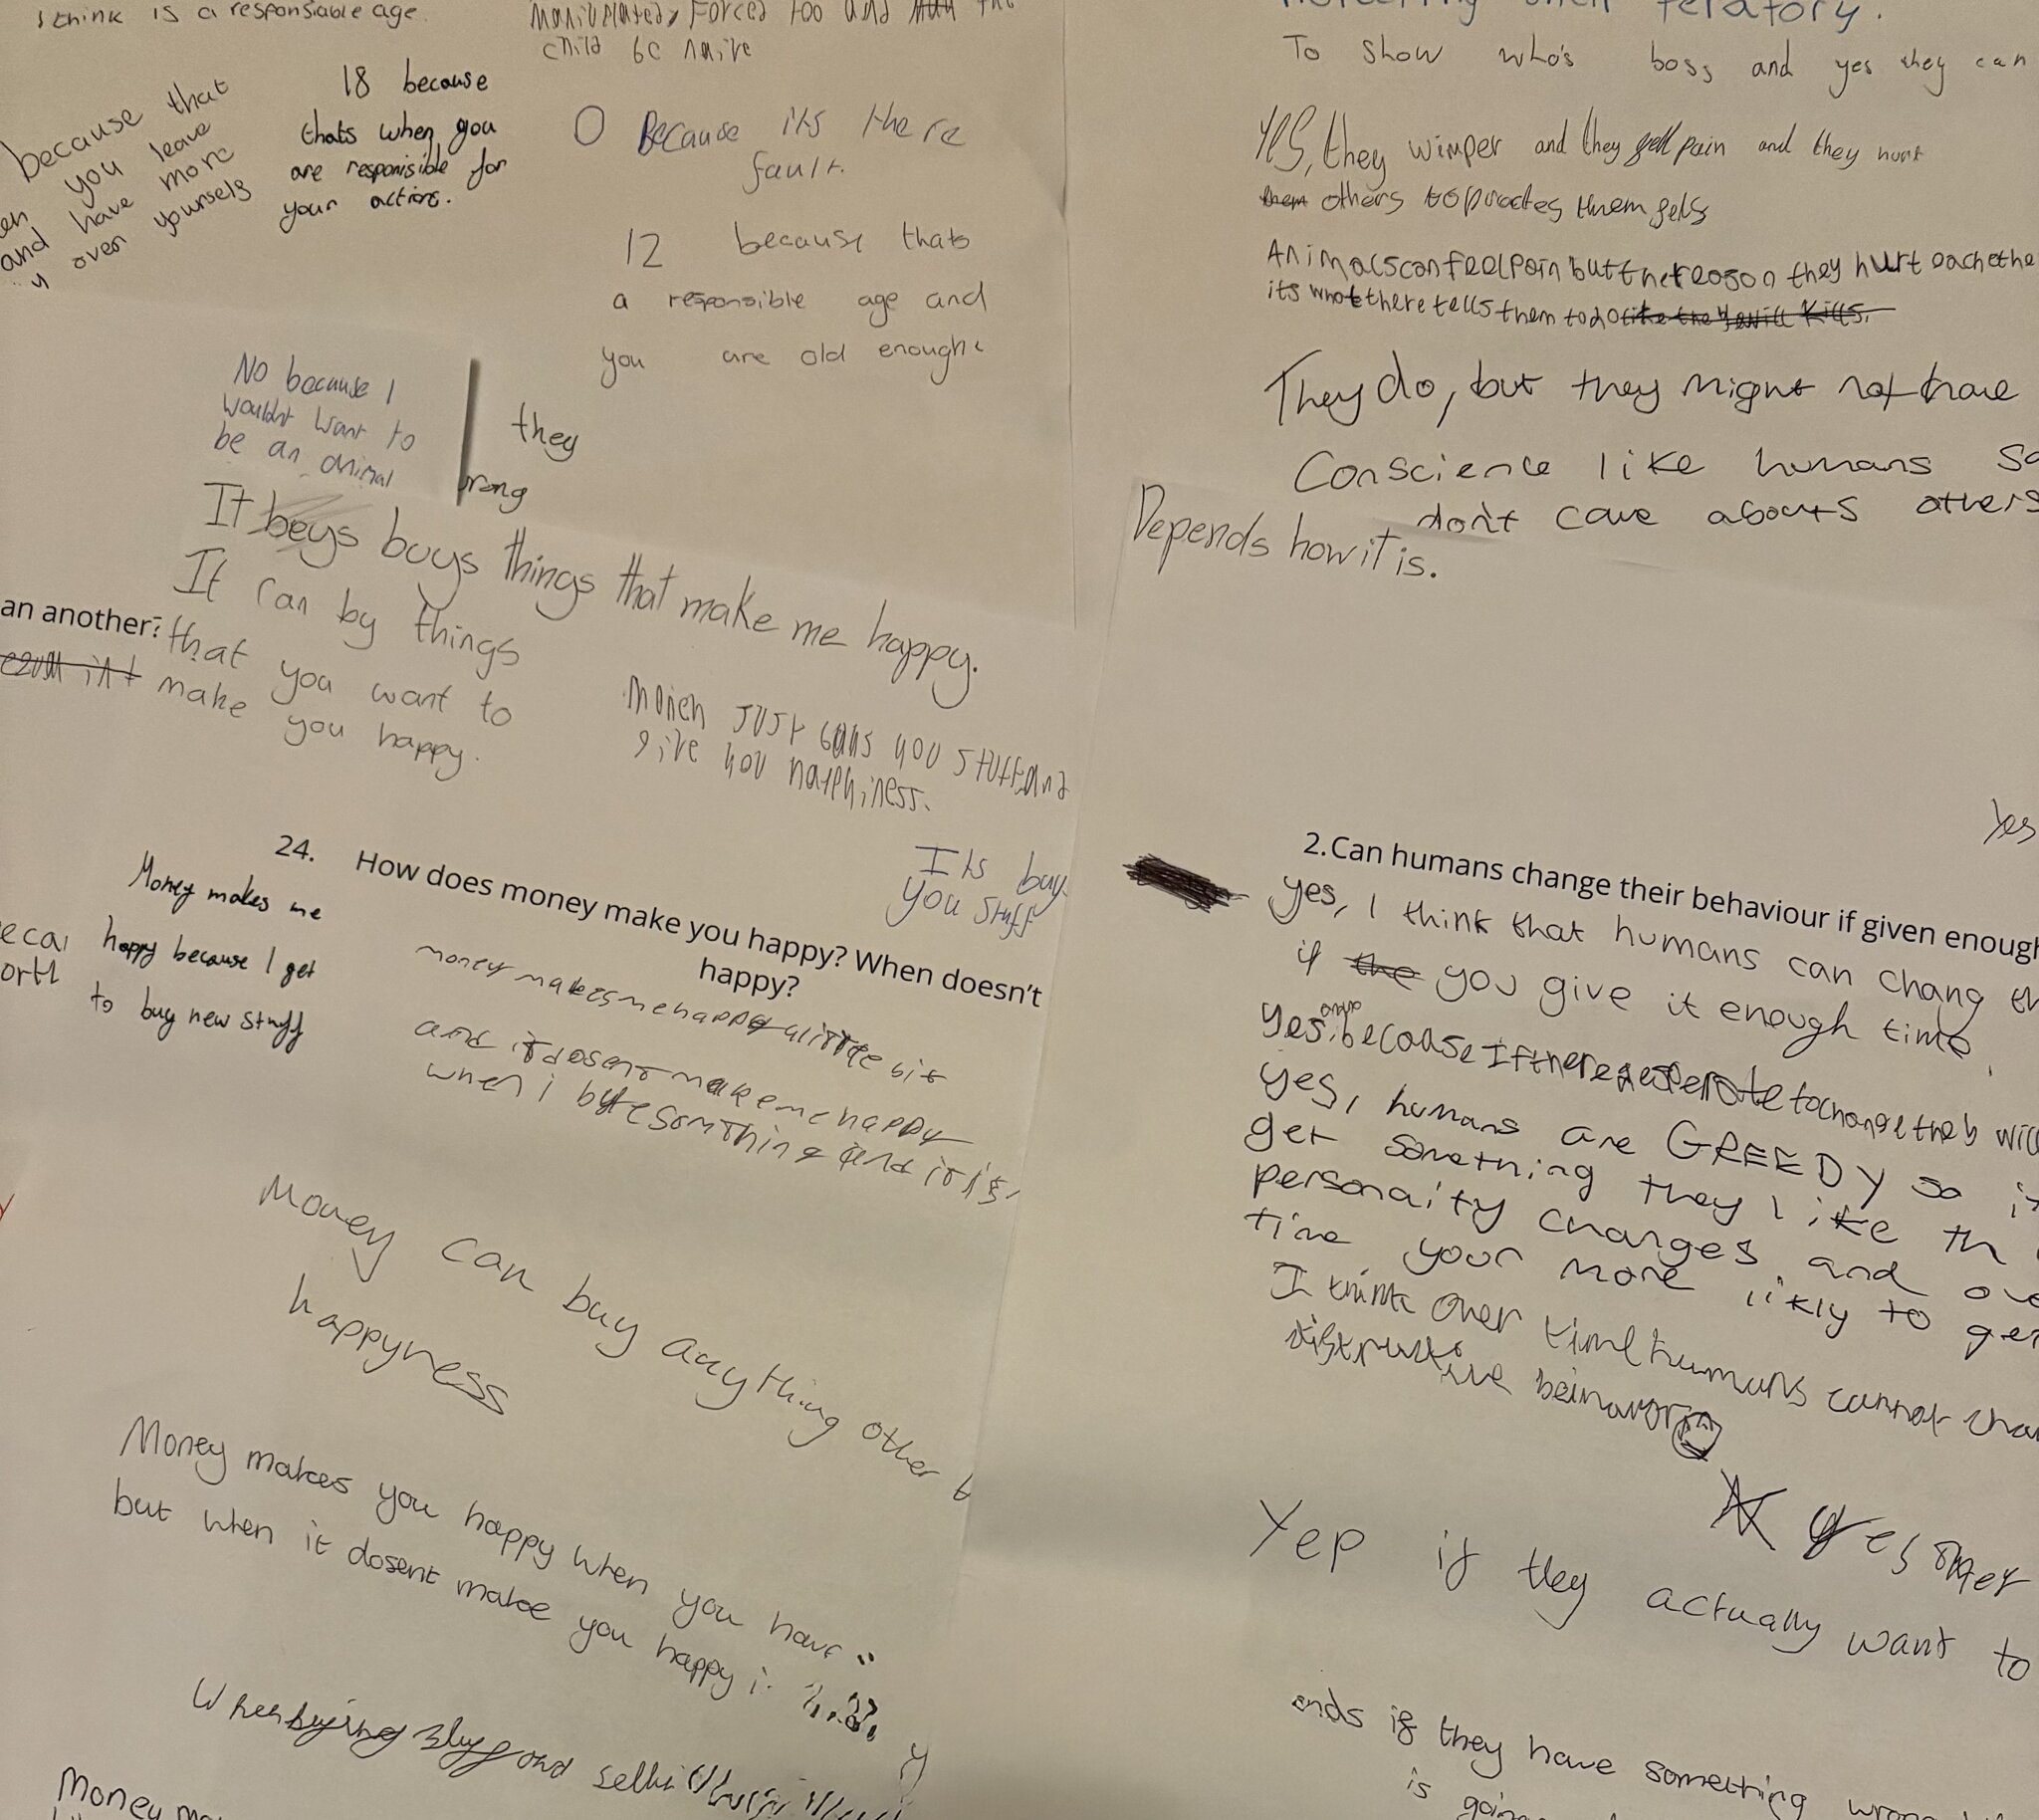 I think is a responsiable age.
child bc naive
because that
you leave
and have more
over yourself
18 because
thats when you
are responisible for
your actions.
0 Because its there
fault.
12 because thats
a responsible age and
you are old enough
No because I
wouldnt want to
be an animal
they
wrong
It beys buys things that make me happy.
It can by things
that you want to
make you happy.
an another?
monen just buys you stuff and
give you happhiness.
Its buy
you stuff
24. How does money make you happy? When doesn't
happy?
Money makes me
happy because I get
to buy new stuff
money makes me happy a little bit
and it dosent make me happy
when i byte somthing and it is
Money can buy anything other
happyness
Money makes you happy when you have
but when it dosent make you happy i.
When bying stuff and
Money
feratory.
To show who's boss and yes they can
Yes, they wimper and they feel pain and they hurt
them others to protes themself
Animals can feel pain but the reason they hurt eachothe
its whot there tells them to do like they will kills.
They do, but they might not have
Conscience like humans so
don't care abouts others
Depends how it is.
Yes
2. Can humans change their behaviour if given enough
yes, I think that humans can chang th
if the you give it enough time.
Yes, because If there desperate to change they will
yes, humans are GREEDY so i
get something they like th
personaity changes and ove
time your more likly to ge
I think over time humans cannot cha
distructive behavor
Yes
Yep if they actually want to
ends if they have something wrong
is going